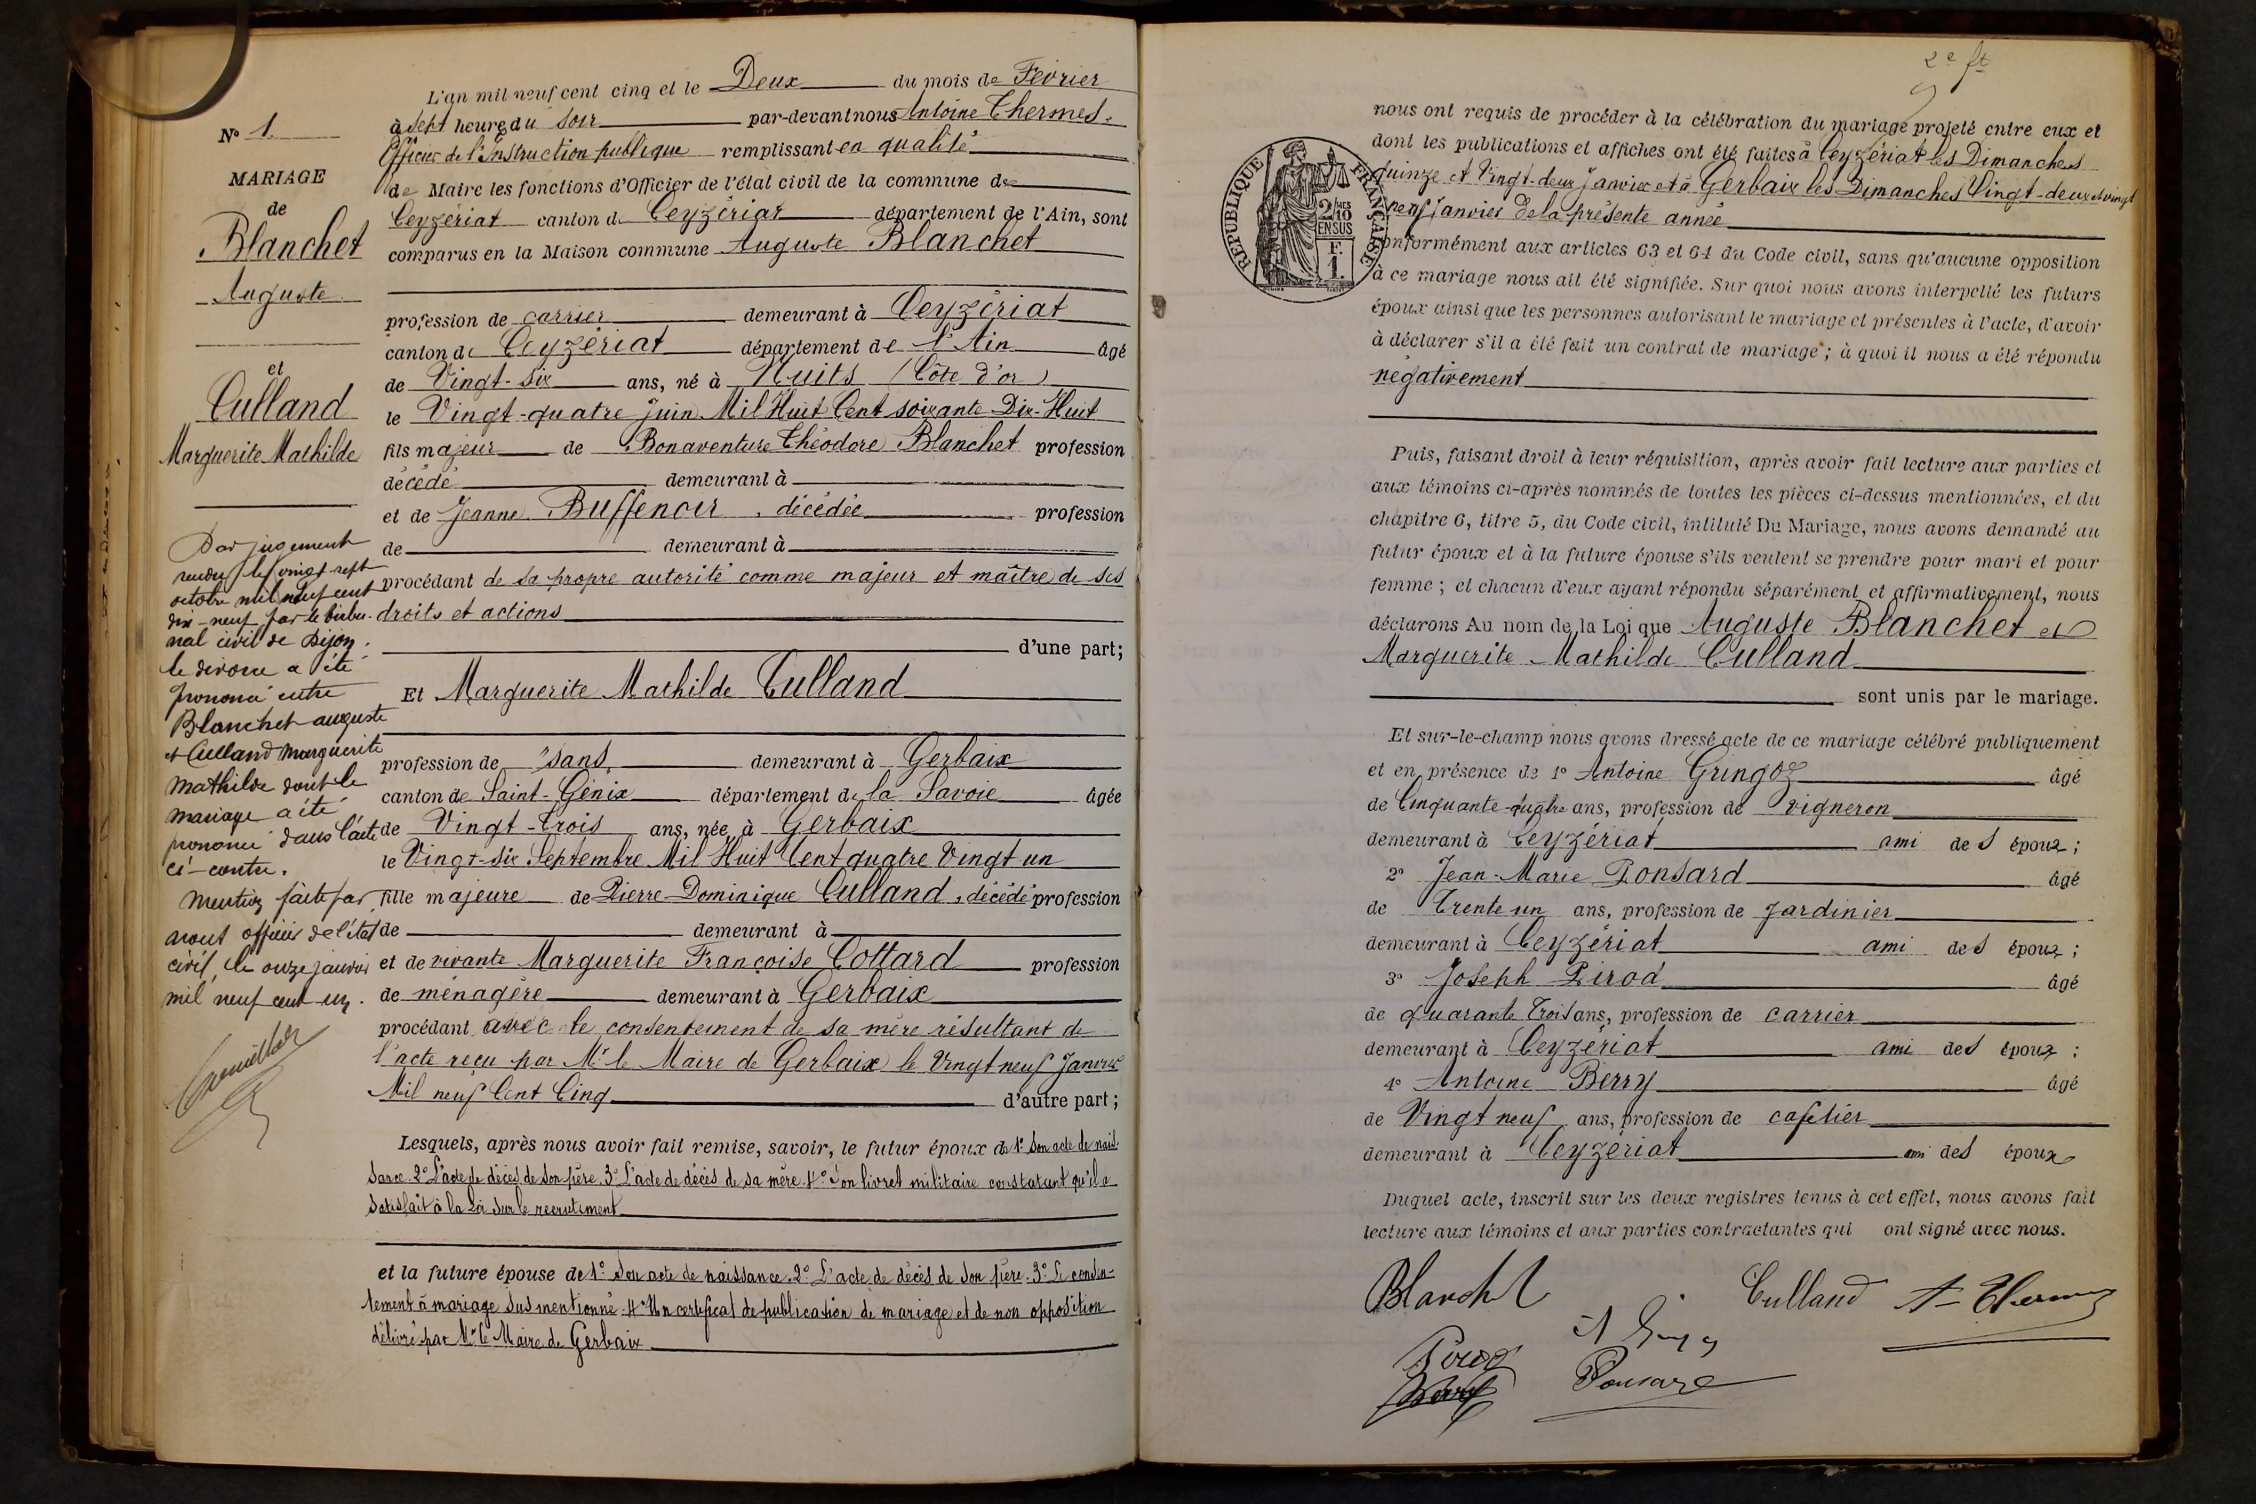 L'an mil neuf cent cinq et le Deux du mois de Février
à sept heures du soir par-devant nous Antoine Thermes.
Officier de l'Instruction publique remplissant en qualité
de Maire les fonctions d'Officier de l'état civil de la commune de
Ceyzériat canton de Ceyzériat département de l'Ain, sont
comparus en la Maison commune Auguste Blanchet
profession de carrier demeurant à Ceyzériat
canton de Ceyzériat département de l'Ain âgé
de Vingt-six ans, né à Nuits (Côte d'or)
le Vingt-quatre Juin Mil Huit Cent soixante Dix-Huit
fils majeur de Bonaventure Théodore Blanchet profession
décédé demeurant à
et de Jeanne Buffenoir, décédée profession
de demeurant à
procédant de sa propre autorité comme majeur et maître de ses
droits et actions
d'une part;
Et Marguerite Mathilde Culland
profession de sans demeurant à Gerbaix
canton de Saint-Génix département de la Savoie âgée
de Vingt-Trois ans, née à Gerbaix
le Vingt-six Septembre Mil Huit Cent quatre Vingt un
fille majeure de Pierre-Dominique Culland, décédé profession
de demeurant à
et de vivante Marguerite Françoise Cottard profession
de ménagère demeurant à Gerbaix
procédant avec le consentement de sa mère résultant de
l'acte reçu par Mr le Maire de Gerbaix le Vingt neuf Janvier
Mil neuf Cent Cinq d'autre part;
Lesquels, après nous avoir fait remise, savoir, le futur époux de 1° Son acte de nais-
sance. 2° L'acte de décès de son père. 3° L'acte de décès de sa mère. 4° Son livret militaire constatant qu'il a
satisfait à la Loi sur le recrutement
et la future épouse de 1° Son acte de naissance. 2° L'acte de décès de son père. 3° Le consen-
tement à mariage sus mentionné. 4° Un certificat de publication de mariage et de non opposition
délivré par Mr le Maire de Gerbaix
N° 1.
MARIAGE
de
Blanchet
Auguste
et
Culland
Marguerite Mathilde
Par jugement
rendu le vingt sept
octobre mil neuf cent
dix-neuf par le tribu-
nal civil de Dijon
le divorce a été
prononcé entre
Blanchet auguste
et Culland Marguerite
Mathilde dont le
mariage a été
prononcé dans l'acte
ci-contre.
Mention faite par
nous officier de l'état
civil, le onze janvier
mil neuf cent
2e ft
nous ont requis de procéder à la célébration du mariage projeté entre eux et
dont les publications et affiches ont été faites à Ceyzériat les Dimanches
quinze et Vingt-deux Janvier et à Gerbaix les Dimanches Vingt-deux et vingt
neuf Janvier de la présente année
conformément aux articles 63 et 64 du Code civil, sans qu'aucune opposition
à ce mariage nous ait été signifiée. Sur quoi nous avons interpellé les futurs
époux ainsi que les personnes autorisant le mariage et présentes à l'acte, d'avoir
à déclarer s'il a été fait un contrat de mariage; à quoi il nous a été répondu
négativement
RÉPUBLIQUE FRANÇAISE
2/10 MES
EN SUS
F.
1.
Puis, faisant droit à leur réquisition, après avoir fait lecture aux parties et
aux témoins ci-après nommés de toutes les pièces ci-dessus mentionnées, et du
chapitre 6, titre 5, du Code civil, intitulé Du Mariage, nous avons demandé au
futur époux et à la future épouse s'ils veulent se prendre pour mari et pour
femme; et chacun d'eux ayant répondu séparément et affirmativement, nous
déclarons Au nom de la Loi que Auguste Blanchet et
Marguerite Mathilde Culland
sont unis par le mariage.
Et sur-le-champ nous avons dressé acte de ce mariage célébré publiquement
et en présence de 1° Antoine Gringoz âgé
de Cinquante-quatre ans, profession de vigneron
demeurant à Ceyzériat ami des époux;
2° Jean-Marie Ponsard âgé
de Trente un ans, profession de Jardinier
demeurant à Ceyzériat ami des époux;
3° Joseph Pirod âgé
de quarante Trois ans, profession de carrier
demeurant à Ceyzériat ami des époux;
4° Antoine Berry âgé
de Vingt neuf ans, profession de cafetier
demeurant à Ceyzériat ami des époux
Duquel acte, inscrit sur les deux registres tenus à cet effet, nous avons fait
lecture aux témoins et aux parties contractantes qui ont signé avec nous.
Blanchet Culland A Thermes
Pirod
Berry Ponsard